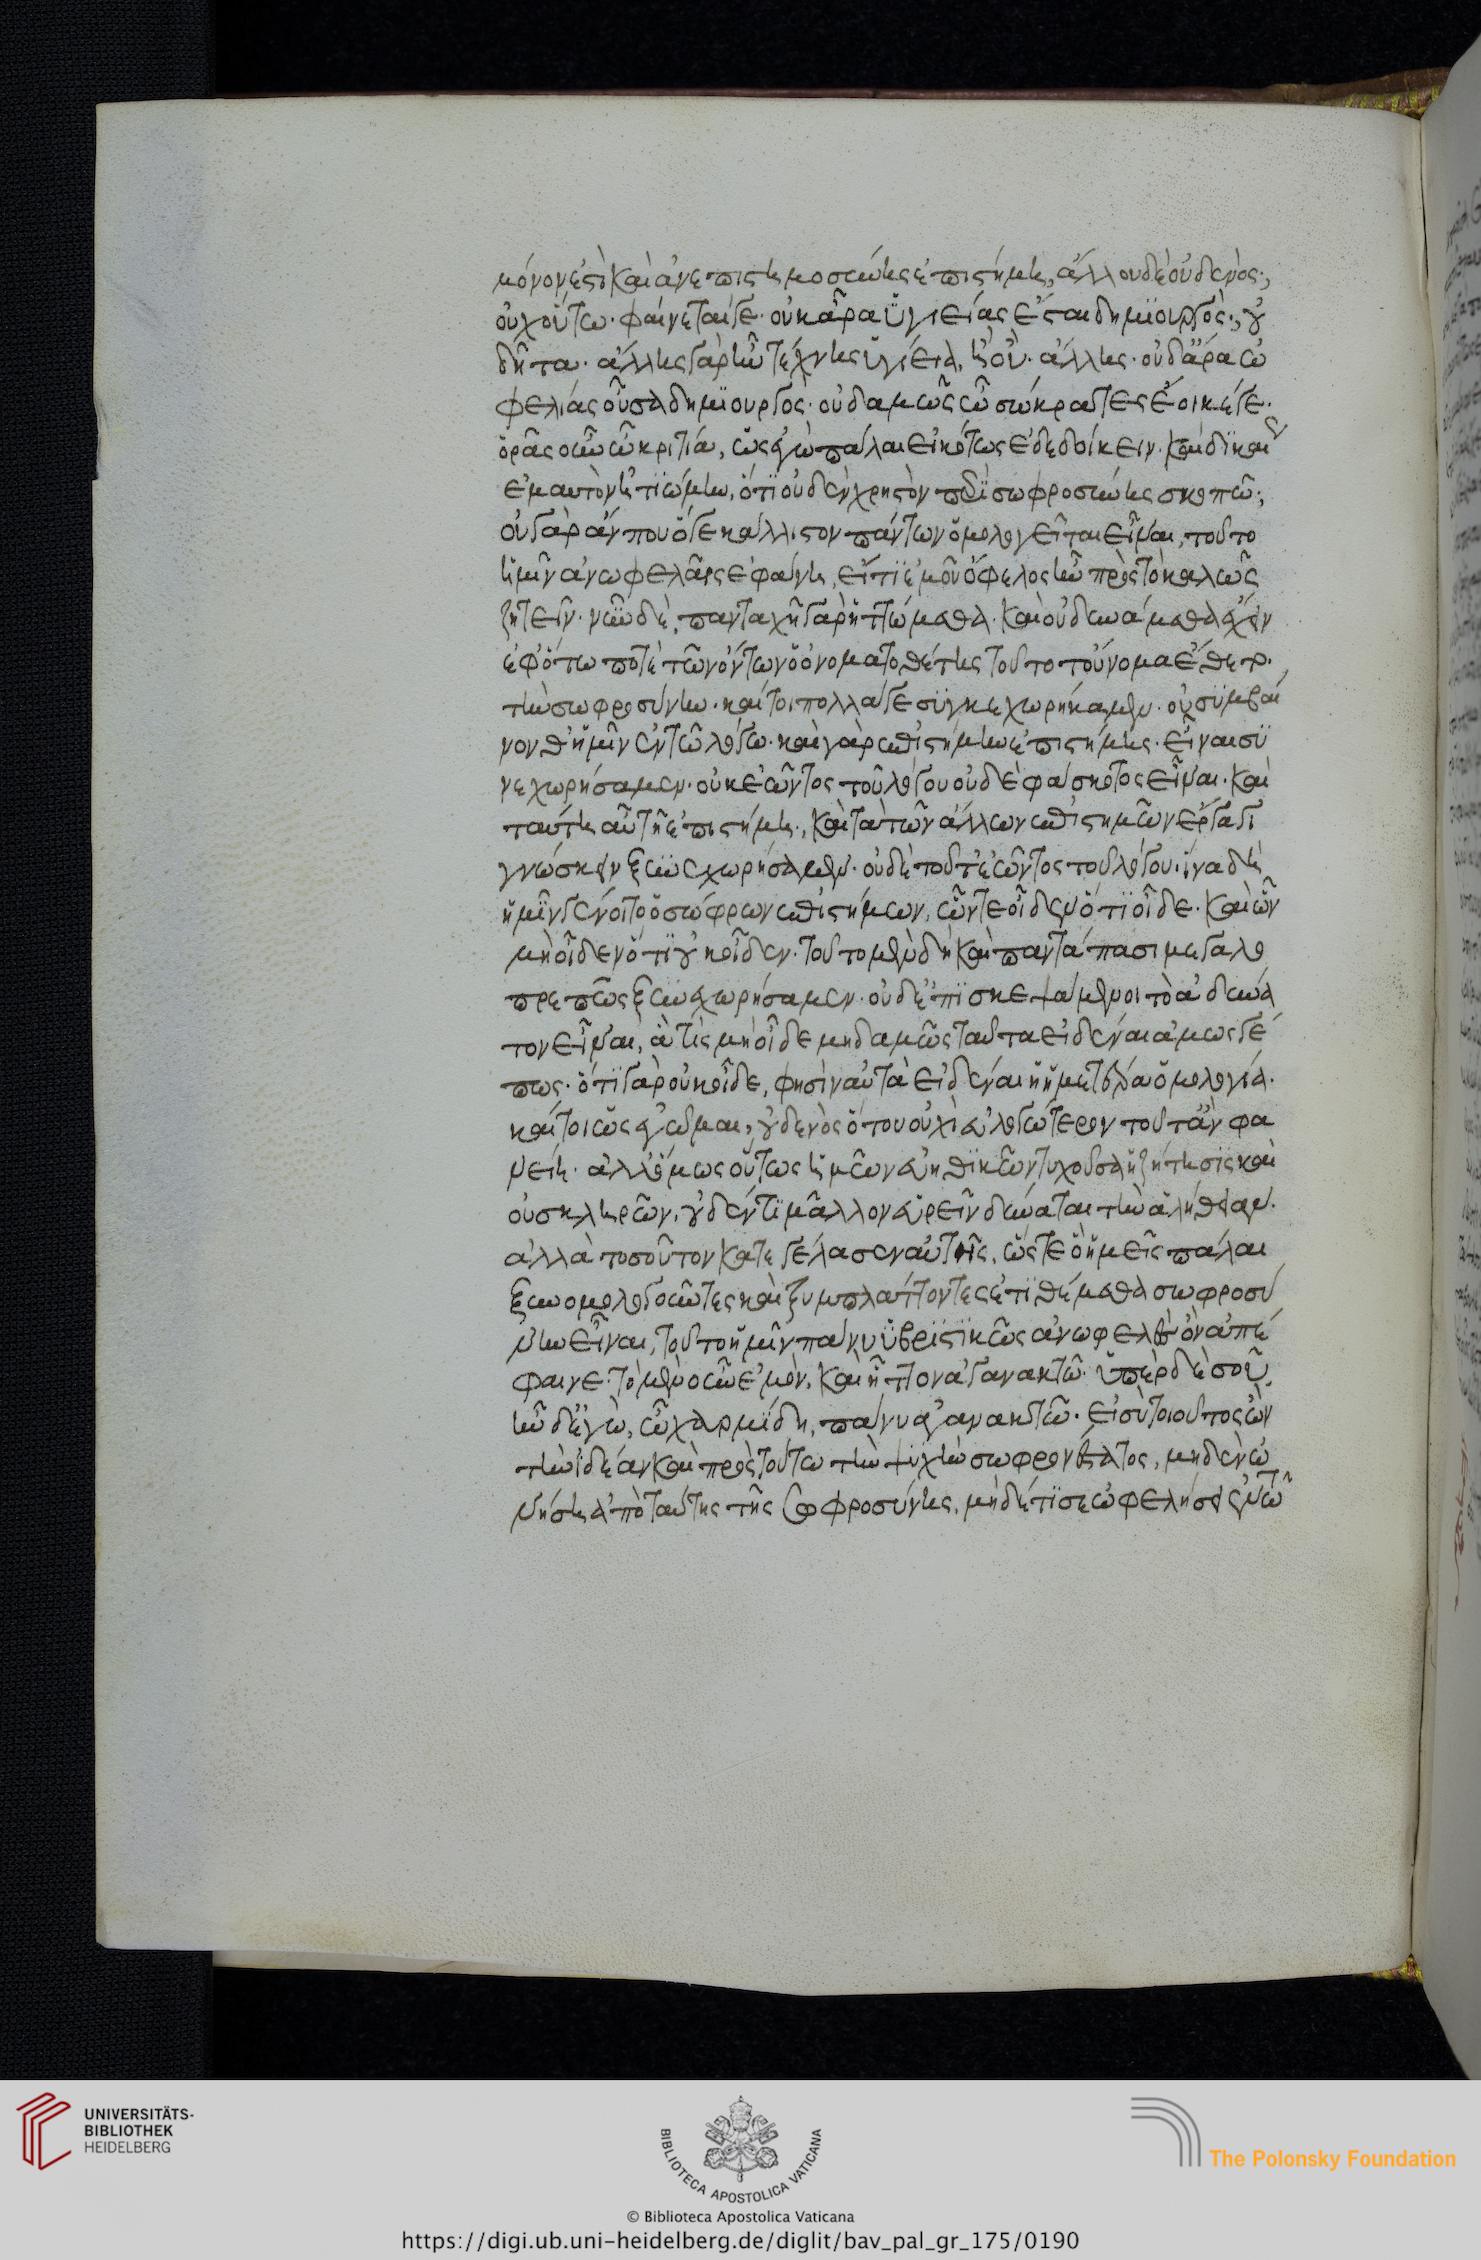 μόνον ἐστὶ καὶ ἀνεπιστημοσύνης ἐπιστήμη, ἄλλου δὲ οὐδενός;
οὐχ οὕτω. φαίνεταί γε. οὐκ ἄρα ὑγιείας ἔσται δημιουργός; οὐ
δῆτα. ἄλλης γὰρ ἦν τέχνης ὑγίεια, ἢ οὔ. ἄλλης. οὐδ' ἄρα ὠ
φελίας οὖσα δημιουργός. οὐδαμῶς ὦ σώκρατες ἔοικέ γε.
ὁρᾶς οὖν ὦ κριτία, ὡς ἐγὼ πάλαι εἰκότως ἐδεδοίκειν. καὶ δικαίως
ἐμαυτὸν ἠτιώμην, ὅτι οὐδὲν χρηστὸν περὶ σωφροσύνης σκοπῶ;
οὐ γὰρ ἄν που ὅ γε κάλλιστον πάντων ὁμολογεῖται εἶναι, τοῦτο
ἡμῖν ἀνωφελὲς ἐφάνη, εἴ τι ἐμοῦ ὄφελος ἦν πρὸς τὸ καλῶς
ζητεῖν. νῦν δὲ, πανταχῆ γὰρ ἡττώμεθα. καὶ οὐ δυνάμεθα εὑρεῖν
ἐφ' ὅτω ποτὲ τῶν ὄντων ὁ ὀνοματοθέτης τοῦτο τοὔνομα ἔθετο.
τὴν σωφροσύνην. καίτοι πολλά γε συγκεχωρήκαμεν. οὐ συμβαί
νονθ' ἡμῖν ἐν τῶ λόγω. καὶ γὰρ ἐπιστήμην ἐπιστήμης. εἶναι συ
νεχωρήσαμεν. οὐκ ἐῶντος τοῦ λόγου οὐδὲ φάσκοντος εἶναι. καὶ
ταύτη αὖ τῆ ἐπιστήμη, καὶ τὰ τῶν ἄλλων ἐπιστημῶν ἔργα γι
γνώσκειν ξυνεχωρήσαμεν. οὐδὲ τοῦτ' ἐῶντος τοῦ λόγου. ἵνα δὴ
ἡμῖν γένοιτο ὁ σώφρων ἐπιστήμων, ὧν τε οἶδεν ὅτι οἶδε. καὶ ὧν
μὴ οἶδεν ὅτι οὐκ οἶδεν. τοῦτο μὲν δὴ καὶ παντάπασι μεγαλο
πρεπῶς ξυνεχωρήσαμεν. οὐδ' ἐπισκεψάμενοι τὸ ἀδύνα
τον εἶναι, ἅ τις μὴ οἶδε μηδαμῶς ταῦτα εἰδέναι ἁμῶς γέ
πως. ὅτι γὰρ οὐκ οἶδε, φησὶν αὐτὰ εἰδέναι ἡ ἡμετέρα ὁμολογία.
καίτοι ὡς ἐγῶμαι, οὐδενὸς ὅτου οὐχὶ ἀλογώτερον τοῦτ' ἂν φα
νείη. ἀλλ' ὅμως οὕτως ἡμῶν εὐηθικῶν τυχοῦσα ἡ ζήτησις καὶ
οὐ σκληρῶν, οὐδέν τι μᾶλλον εὑρεῖν δύναται τὴν ἀλήθειαν.
ἀλλὰ τοσοῦτον κατεγέλασεν αὐτῆς, ὥστε ὃ ἡμεῖς πάλαι
ξυνομολογοῦντες καὶ ξυμπλάττοντες ἐτιθέμεθα σωφροσύ
νην εἶναι, τοῦτο ἡμῖν πάνυ ὑβριστικῶς ἀνωφελὲς ὂν ἀπέ
φαινε. τὸ μὲν οὖν ἐμὸν, καὶ ἧττον ἀγανακτῶ. ὑπὲρ δὲ σοῦ,
ἦν δ' ἐγὼ, ὦ χαρμίδη, πάνυ ἀγανακτῶ. εἰ σὺ τοιοῦτος ὢν
τὴν ἰδέαν καὶ πρὸς τούτω τὴν ψυχὴν σωφρονέστατος, μηδὲν ὀ
νήση ἀπὸ ταύτης τῆς σωφροσύνης, μηδέ τί σε ὠφελήσει ἐν τῶ
UNIVERSITÄTS-
BIBLIOTHEK
HEIDELBERG
BIBLIOTECA APOSTOLICA VATICANA
The Polonsky Foundation
© Biblioteca Apostolica Vaticana
https://digi.ub.uni-heidelberg.de/diglit/bav_pal_gr_175/0190